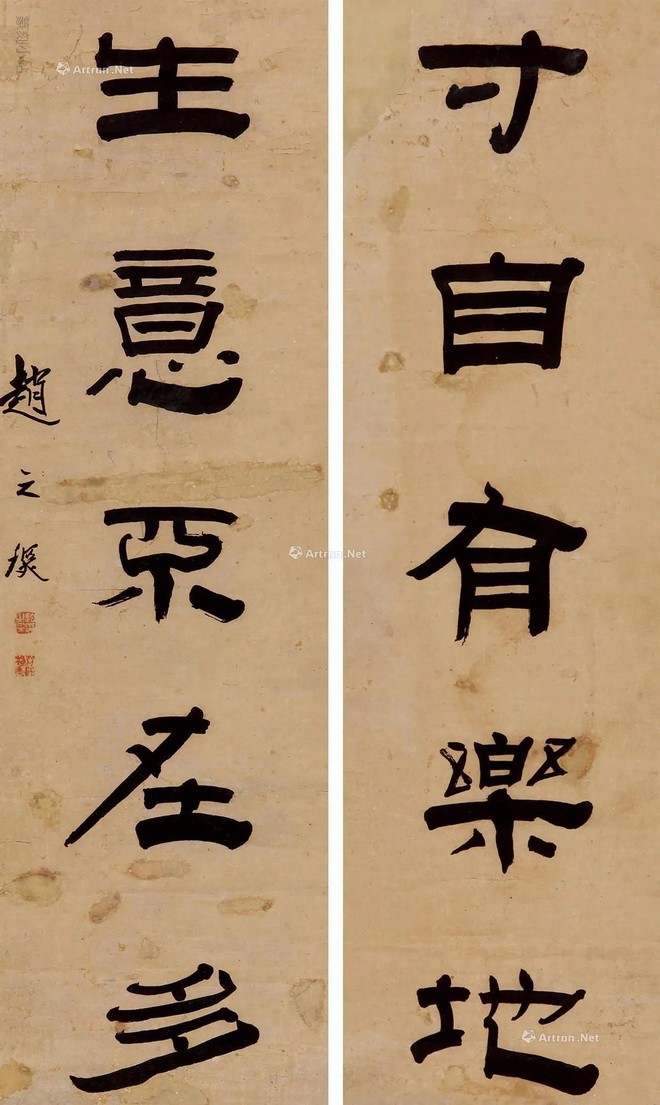 寸自有樂地
生意在多
趙之琛
Artron.Net
Artron.Net
Artron.Net